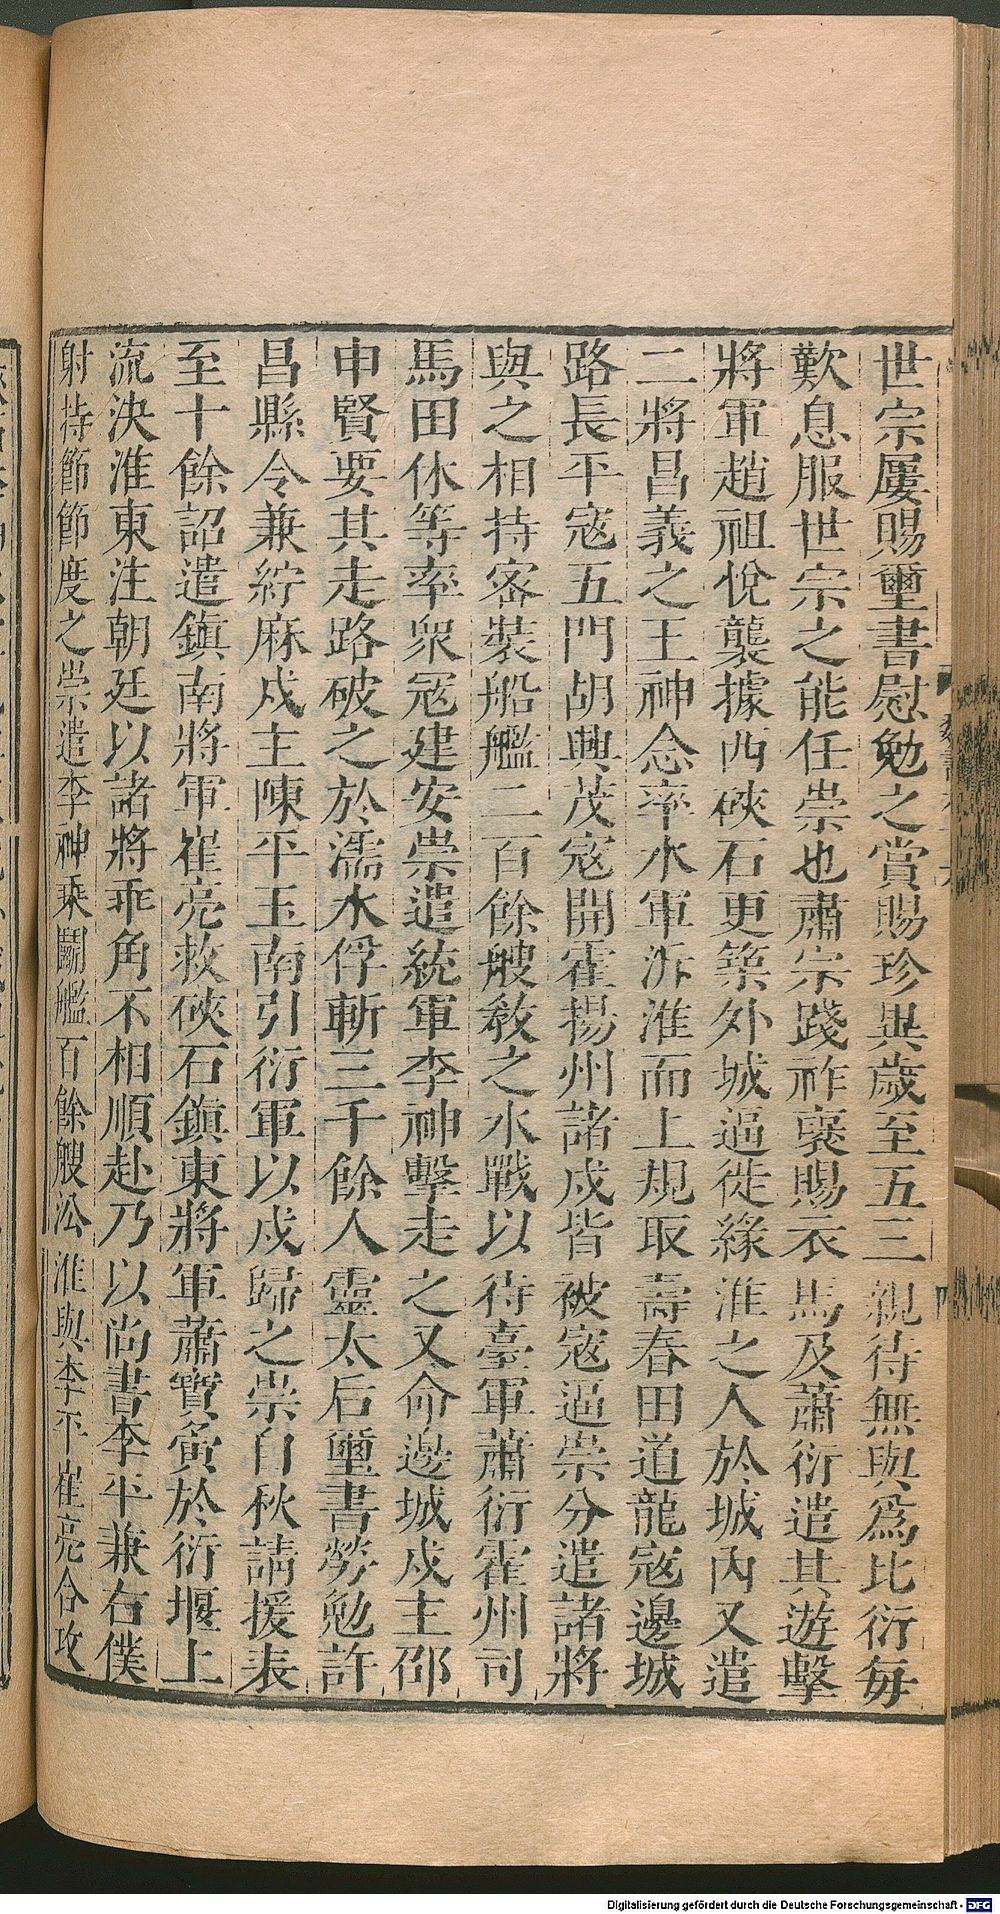 世宗屢賜璽書慰勉之賞賜珍異歲至五三親待無與爲比衍每
歎息服世宗之能任崇也肅宗踐祚襃賜衣馬及蕭衍遣其遊擊
將軍趙祖悅襲據西硤石更築外城逼徙緣淮之人於城內又遣
二將昌義之王神念率水軍泝淮而上規取壽春田道龍寇邊城
路長平寇五門胡興茂寇開霍揚州諸戍皆被寇逼崇分遣諸將
與之相持密裝船艦二百餘艘敎之水戰以待臺軍蕭衍霍州司
馬田休等率眾寇建安崇遣統軍李神擊走之又命邊城戍主邵
申賢要其走路破之於濡水俘斬三千餘人靈太后璽書勞勉許
昌縣令兼紵麻戍主陳平玉南引衍軍以戍歸之崇自秋請援表
至十餘詔遣鎭南將軍崔亮救硤石鎭東將軍蕭寶寅於衍堰上
流決淮東注朝廷以諸將乖角不相順赴乃以尚書李平兼右僕
射持節節度之崇遣李神乘鬬艦百餘艘㳂淮與李平崔亮合攻
Digitalisierung gefördert durch die Deutsche Forschungsgemeinschaft - DFG